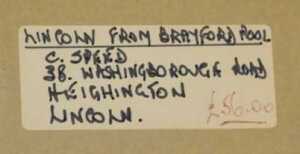 LINCOLN FROM BRAYFORD POOL
C. SPEED
38. WASHINGBOROUGH ROAD
HEIGHINGTON
LINCOLN.
£50.00